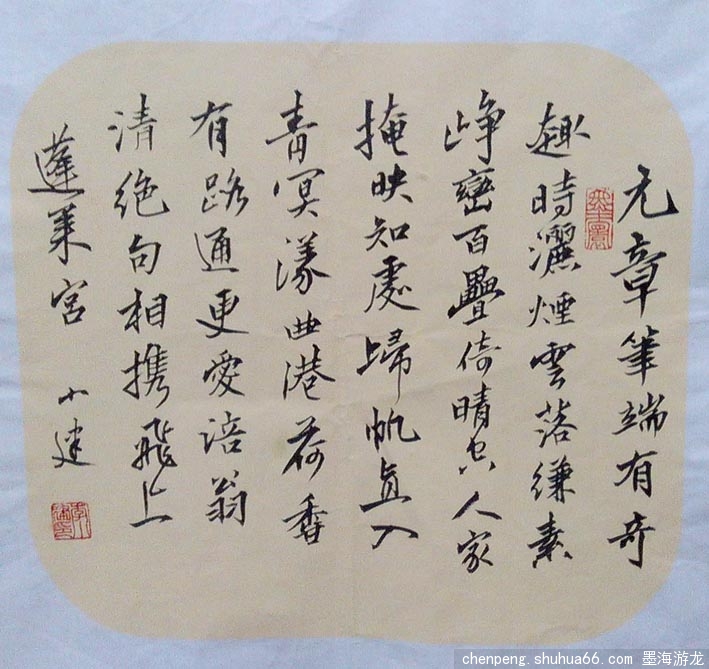 元章筆端有奇
趣時灑煙雲落縑素
崢巒百疊倚晴空人家
掩映知處歸帆直入
青冥濛曲港荷香
有路通更愛涪翁
清絕句相携飛上
蓬萊宮 小建
chenpeng.shuhua66.com 墨海游龙